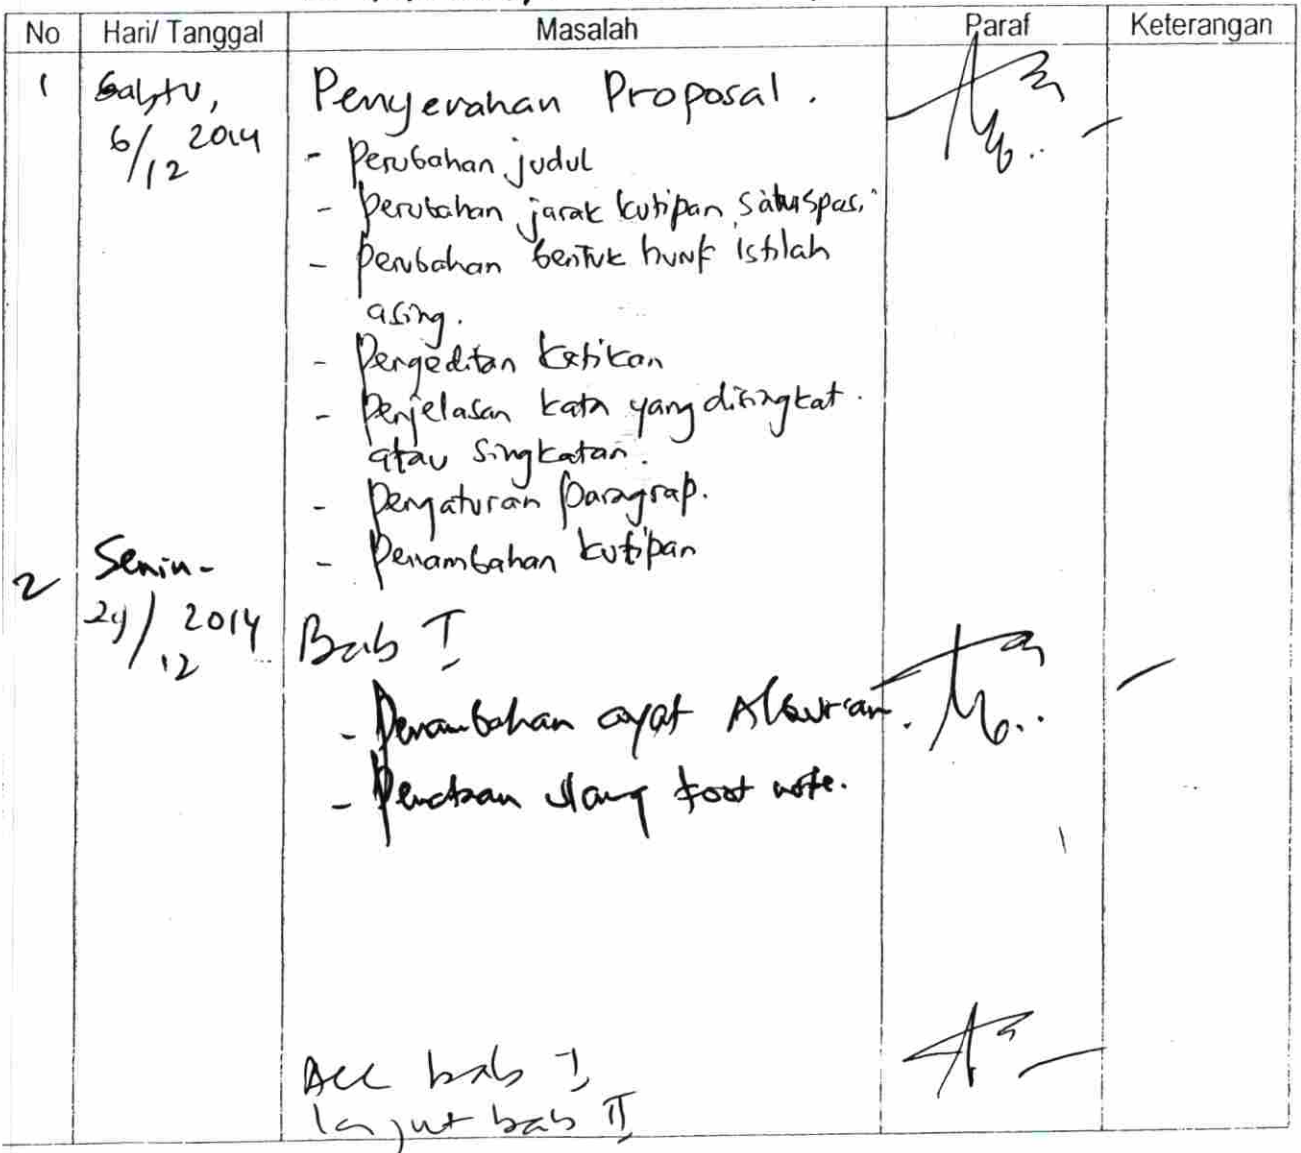 No Hari/ Tanggal Masalah Paraf Keterangan
1 Sabtu, Penyerahan Proposal.
6/12 2014 - Perubahan judul
- Perubahan jarak kutipan satu spasi
- Perubahan bentuk huruf istilah
asing.
- Pengeditan ketikan
- Penjelasan kata yang disingkat.
atau singkatan.
- Pengaturan paragrap.
- Penambahan kutipan
2 Senin-
/12 2014 Bab I
- Penambahan ayat Alqur'an.
- ulang foot note.
ACC bab I
lanjut bab II